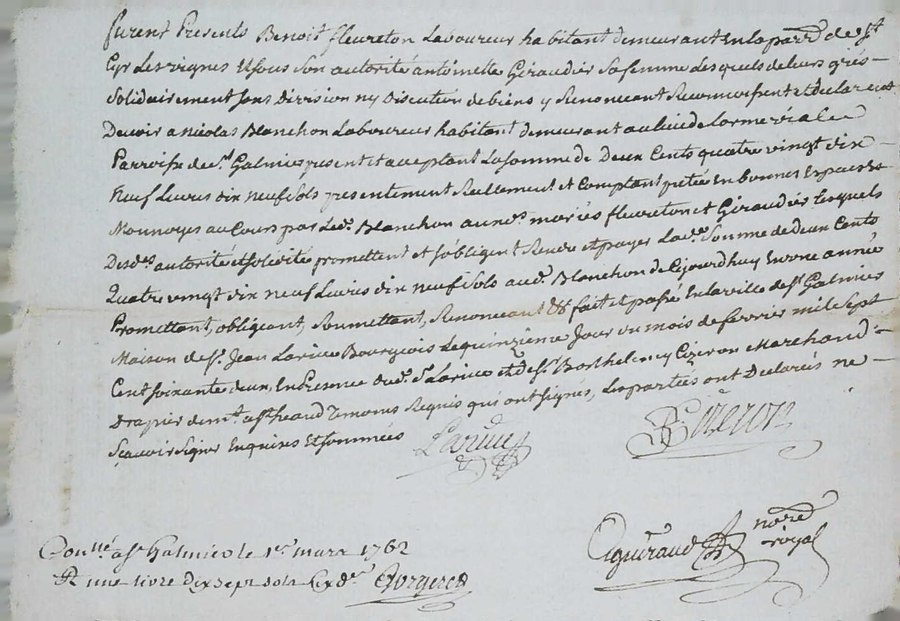 furent Presents Benoit fleureton Laboureur habitant demeurant En la parr.e de S.t
Cyr Les vignes Et sous Son autorité antoinette Giraudier Sa femme Lesquels de leurs grés
Solidairement sans Division ny Discution de biens y Renonceant Reconnoissent et declarent
Devoir a Nicolas Blanchon Laboureur habitant demeurant au lieu de
Parroisse de S.t Galmier present et acceptant La somme de Deux Cents quatre vingt dix
Neuf Livres dix neuf sols presentement Reellement et Comptant pretée En bonnes Especes et
Monnoyes au Cours par Led.t Blanchon aux d.s mariés fleureton et Giraudier lesquels
Desd.es autorité et solidité promettent et s'obligent Rendre et payer Lad.e Somme de deux Cents
Quatre vingt dix neuf Livres dix neuf Sols aud.t Blanchon de Cejourdhuy En une année
Promettant, obligeant, Soumettant, Renonceant &c fait et passé En la ville de S.t Galmier
Maison de S.r Jean Larive Bourgeois Le quinzième Jour du mois de fevrier mil Sept
Cent soixante deux, En Presence dud. S.r Larive et de S.r Barthelemy Cizeron Marchand
Drapier dem.t a S.t heand Temoins Requis qui ont signés, Les parties ont Declarés ne
Sçavoir Signer Enquises Et sommées
Larive
B Cizeron
Aguiraud no.re
royal
Con.llé a S.t Galmier le 1.er mars 1762
R une livre dix sept sols